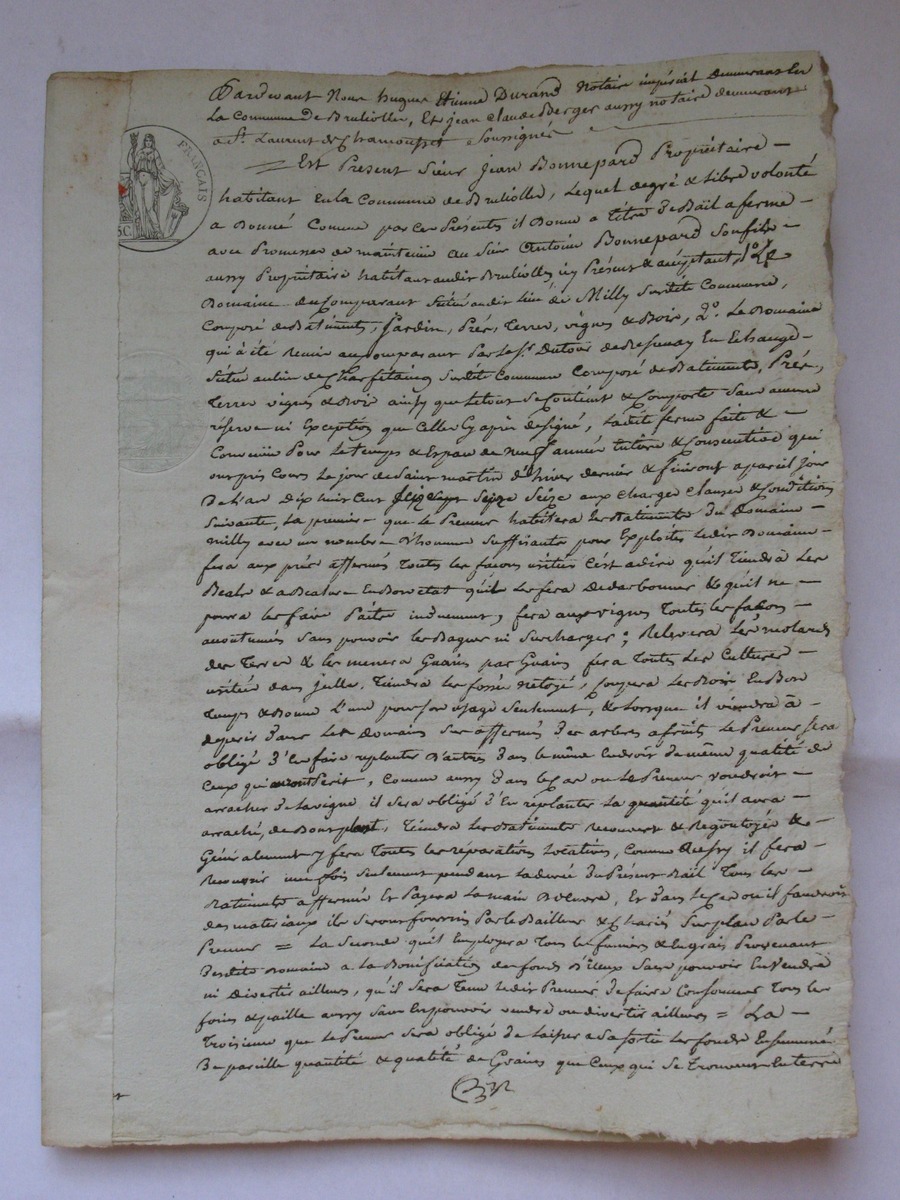 FRANÇAIS
5C.
Pardevant Nous hugue Etienne Durand Notaire impérial Demeurant En
La Commune de Brullolles, Et jean Claude Berger aussy notaire demeurant
a St. Laurent de Chamousset Soussignés
= Est Present Sieur Jean Bonnepard Propriétaire –
habitant En la Commune de Brullolles, Lequel de gré & Libre volonté
a Donné Comme par ces Présentes il Donne a Titre de Bail a ferme –
avec Promesse de maintenir au Sieur Antoine Bonnepard Son fils –
aussy Propriétaire habitant audit Brullolles icy Présent & acceptant, 1° Le
Domaine du Comparant Situé audit Lieu de Milly Susdite Commune,
Composé de Batiments, Jardin, Prés, Terres, vignes & Bois, 2°. Le Domaine
qui a été Remis au Comparant Par Le Sr. Dutour de En Echange
Situé au Lieu de Susdite Commune Composé de Batiments, Prés,
Terres vignes & Bois ainsy que Le tout Se Contient & Comporte Sans aucune
réserve ni Exception que Celles Cy après designé, Ladite ferme faite &
Convenue Pour Le temps & Espace de Neuf années entieres & Consecutives qui
ont pris Cours Le jour de Saint martin d'hiver dernier & finiront a pareil jour
De L'an Dix huit Cent Seize aux Charges Clauses & Conditions
Suivantes, La premiere que Le Preneur habitera Les Batiments du Domaine –
milly avec un nombre D'homme Suffisants pour Exploiter Ledit Domaine
fera aux prés affermés Toutes Les façons usitées C'est a dire qu'il Tiendra Les
& En Bon Etat qu'il Les fera & qu'il ne –
pourra Les faire Paître induement, fera aux vignes Toutes Les façons –
accoutumés Sans pouvoir Les ni Surcharger ; Relevera Les
des Terres & Les menera Guains par Guains fera Toutes Les Cultures –
usitées dans jcelles, Tiendra Les fossés Netoyé, Coupera Les Bois En Bon
Temps & Bonne Lune pour Son usage Seulement, & Lorsque il viendra à –
deperir dans Les Domaines Sus affermés des arbres a fruits Le Preneur Sera
obligé d'En faire replanter D'autres dans Le même Endroit de même qualité de
Ceux qui auront Perit, Comme aussy dans Le Cas ou Le Preneur voudroit –
arracher de La vigne il Sera obligé d'En replanter La quantité qu'il aura –
arraché, de Bons plant, Tiendra Les Batiments recouvert & Regoutoyés & –
Généralement y fera Toutes Les réparations Locatives, Comme il fera
recouvrir une fois Seulement pendant La durée du Présent Bail Tous Les –
Batiments affermés Et Payera La main D'œuvre, Et dans Le Cas ou il faudroit
des materiaux ils Seront fournis Par Le Bailleur & Chariés Sur place Par Le –
Preneur = La Seconde qu'il Employera Tous Les fumiers & Engrais Provenant
Desdits Domaine a La Bonification des fonds D'iceux Sans pouvoir En vendre
ni Divertir ailleurs, qu'il Sera Tenu Ledit Preneur de faire Consommer Tous Les
foins & paille aussy Sans En pouvoir vendre ou divertir ailleurs = La –
Troisieme que Le Preneur Sera obligé de Laisser a Sa Sortie Les fonds Ensemmencé
De pareille quantité & qualité de Grains que Ceux qui Se Trouvent En terre